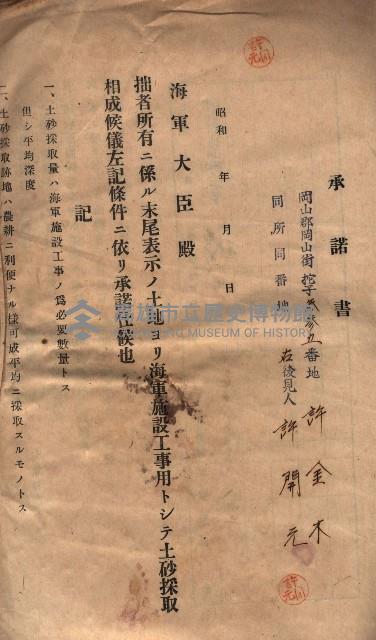 承諾書
岡山郡岡山街挖子 五番地
許金木
同所同番地
右後見人
許開元
昭和 年 月 日
海軍大臣殿
拙者所有ニ係ル末尾表示ノ土地ヨリ海軍施設工事用トシテ土砂採取
相成候儀左記條件ニ依リ承諾仕候也
記
一、土砂採取量ハ海軍施設工事ノ爲必要數量トス
但シ平均深度
一、土砂採取跡地ハ農耕ニ利便ナル樣可成平均ニ採取スルモノトス
高雄市立歷史博物館
KAOHSIUNG MUSEUM OF HISTORY